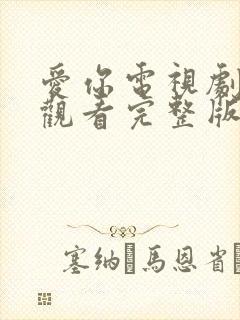 愛你電視劇
觀看完整版
塞納 馬恩省